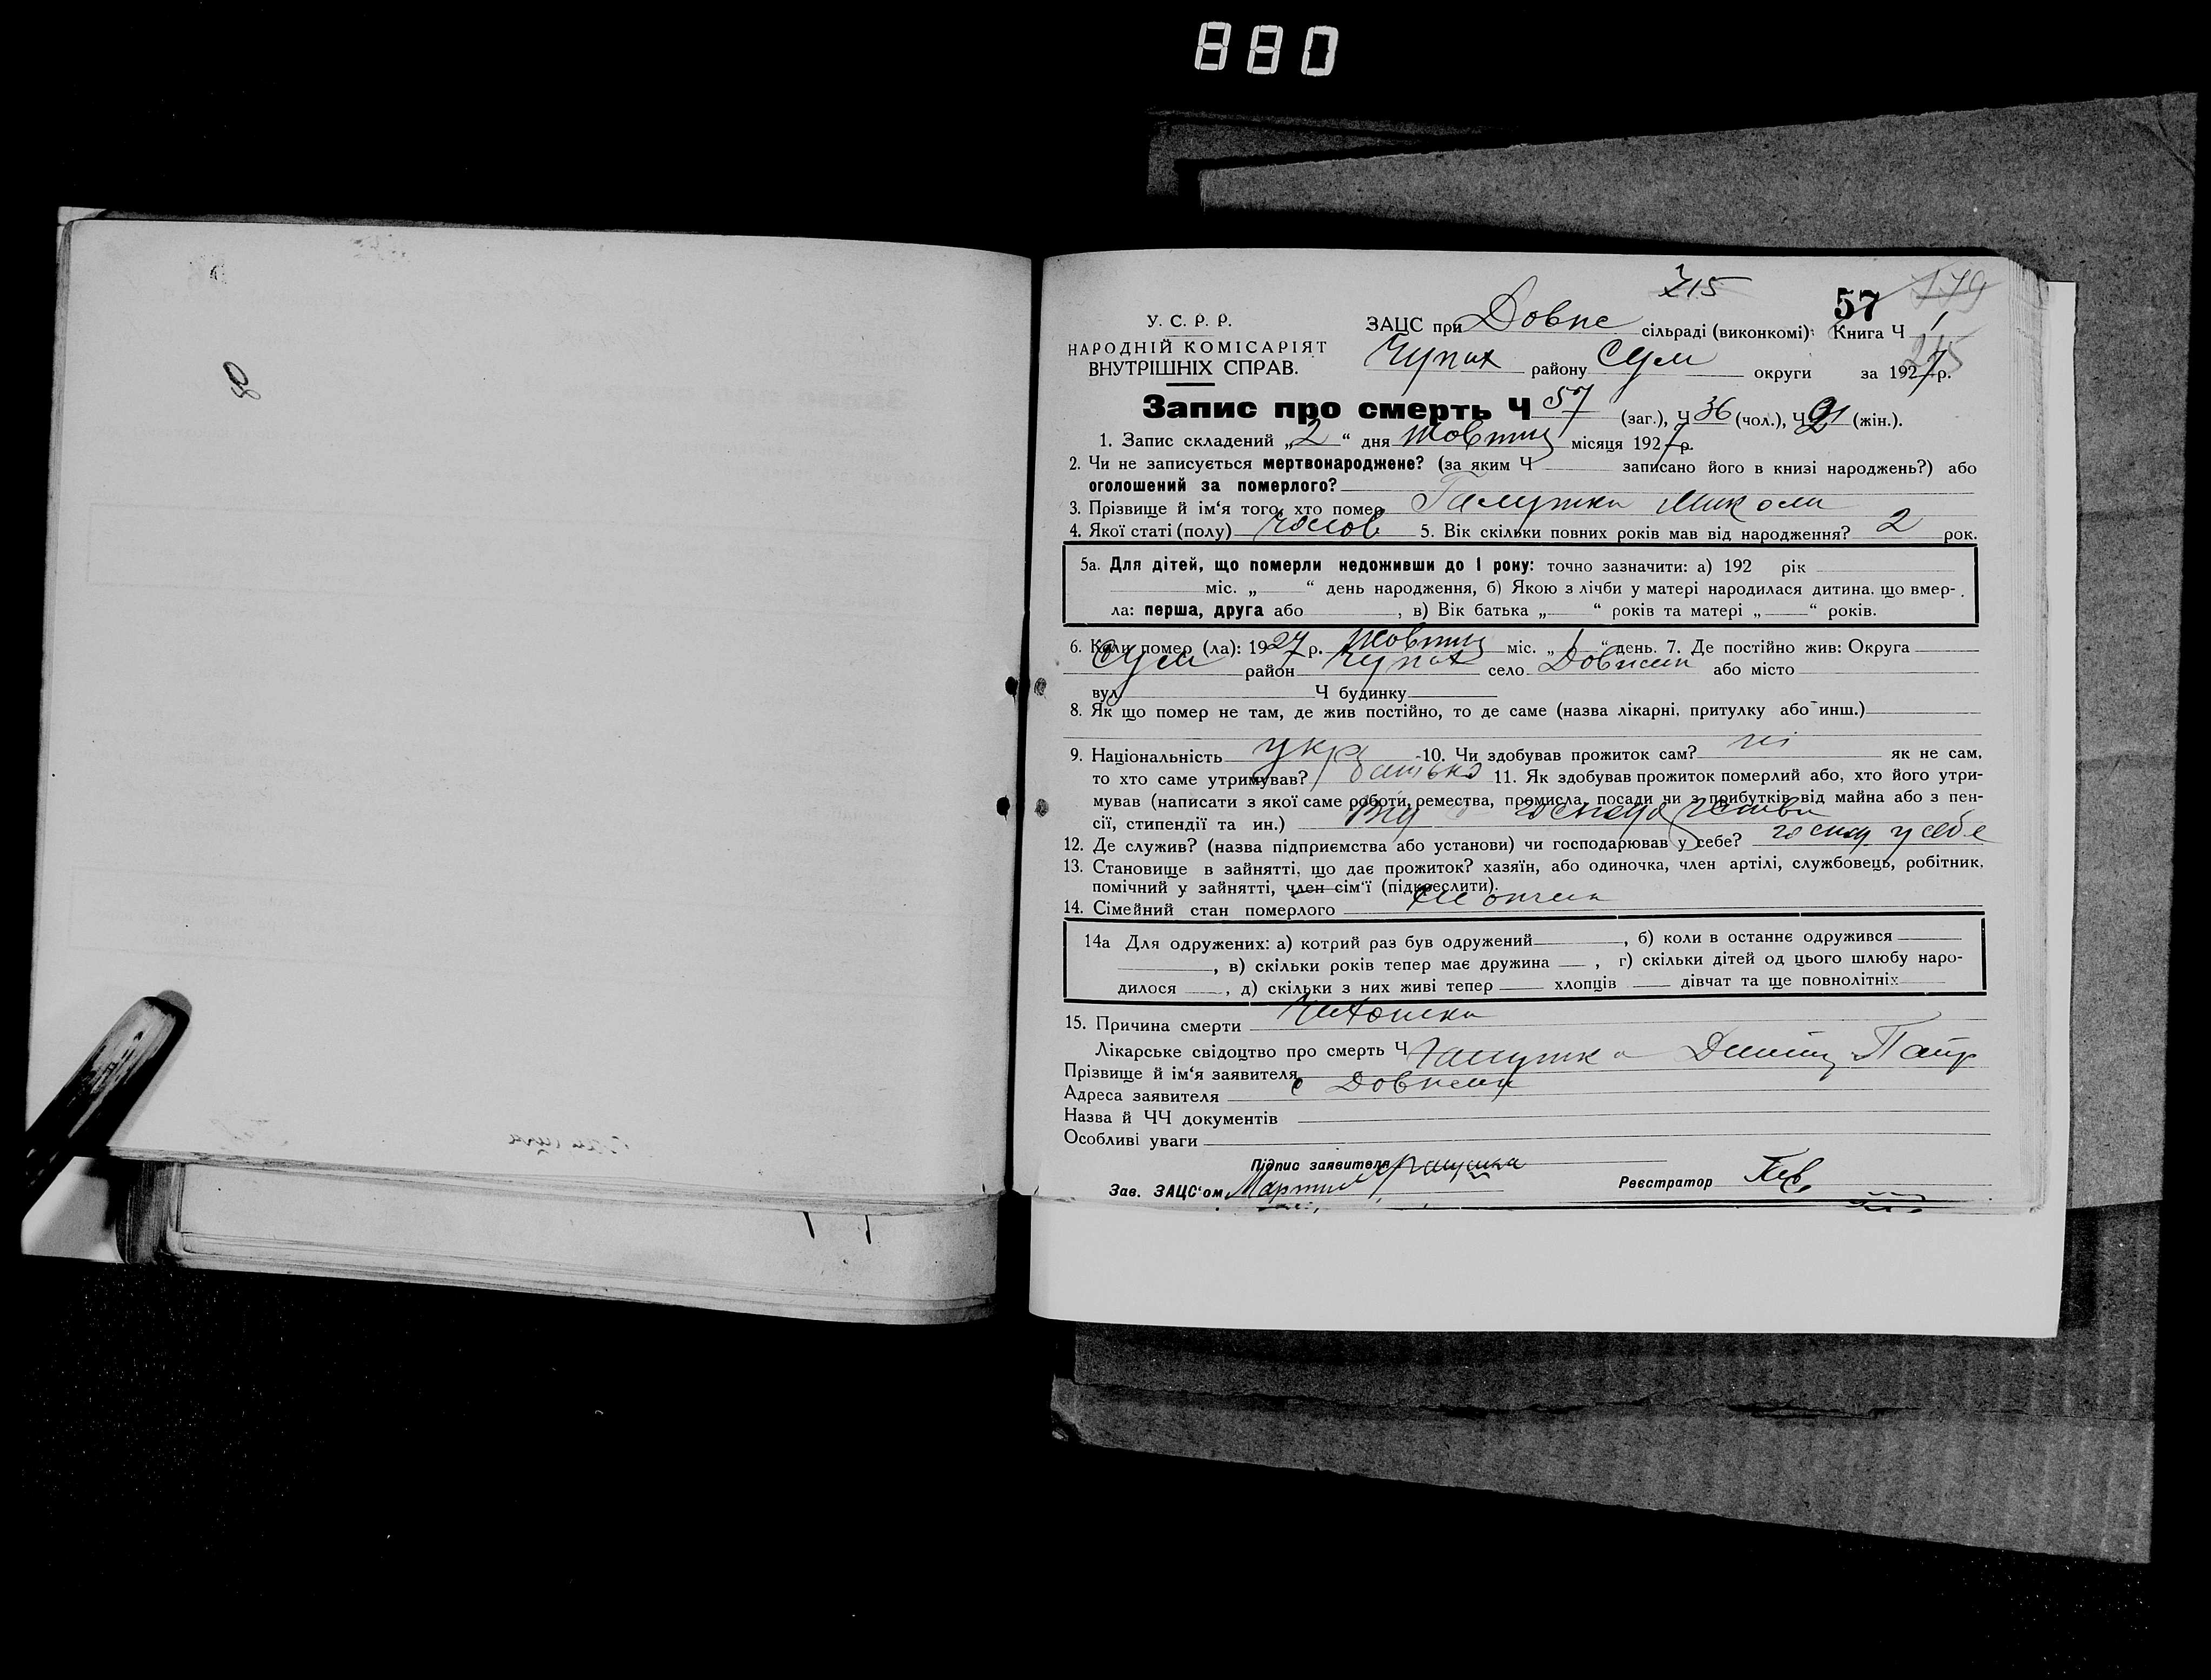 880
315
57 179
У. С. Р. Р.
НАРОДНІЙ КОМІСАРІЯТ
ВНУТРІШНІХ СПРАВ.
ЗАЦС при Довже сільраді (виконкомі): Книга Ч 1
Чупах району Сум округи за 1927 р.
Запис про смерть Ч 57 (заг.), Ч 36 (чол.), Ч 21 (жін.).
1. Запис складений „2“ дня Жовтня місяця 1927 р.
2. Чи не записується мертвонароджене? (за яким Ч записано його в книзі народжень?) або
оголошений за померлого?
3. Прізвище й ім‘я того, хто помер Галушка Микола
4. Якої статі (полу) чолов 5. Вік скільки повних років мав від народження? 2 рок.
5а. Для дітей, що померли недоживши до 1 року: точно зазначити: а) 192 рік
міс. „ “ день народження, б) Якою з лічби у матері народилася дитина. що вмер-
ла: перша, друга або , в) Вік батька „ “ років та матері „ “ років.
6. Коли помер (ла): 1927 р. Жовтня міс. „1“ день. 7. Де постійно жив: Округа
Сум район Чупах село або місто
вул. Ч будинку
8. Як що помер не там, де жив постійно, то де саме (назва лікарні, притулку або инш.)
9. Національність укр 10. Чи здобував прожиток сам? ні як не сам,
то хто саме утримував? батько 11. Як здобував прожиток померлий або, хто його утри-
мував (написати з якої саме роботи, ремества, промисла, посади чи з прибутків від майна або з пен-
сії, стипендії та ин.) від господарства
12. Де служив? (назва підприємства або установи) чи господарював у себе? госпд у себе
13. Становище в зайнятті, що дає прожиток? хазяїн, або одиночка, член артілі, службовець, робітник,
помічний у зайнятті, член сім‘ї (підкреслити).
14. Сімейний стан померлого
14а Для одружених: а) котрий раз був одружений , б) коли в останнє одружився
, в) скільки років тепер має дружина , г) скільки дітей од цього шлюбу наро-
дилося , д) скільки з них живі тепер хлопців дівчат та ще повнолітніх
15. Причина смерти
Лікарське свідоцтво про смерть Ч
Прізвище й ім‘я заявителя Галушка
Адреса заявителя с
Назва й ЧЧ документів
Особливі уваги
Підпис заявителя Галушка
Зав. ЗАЦС‘ом Реєстратор